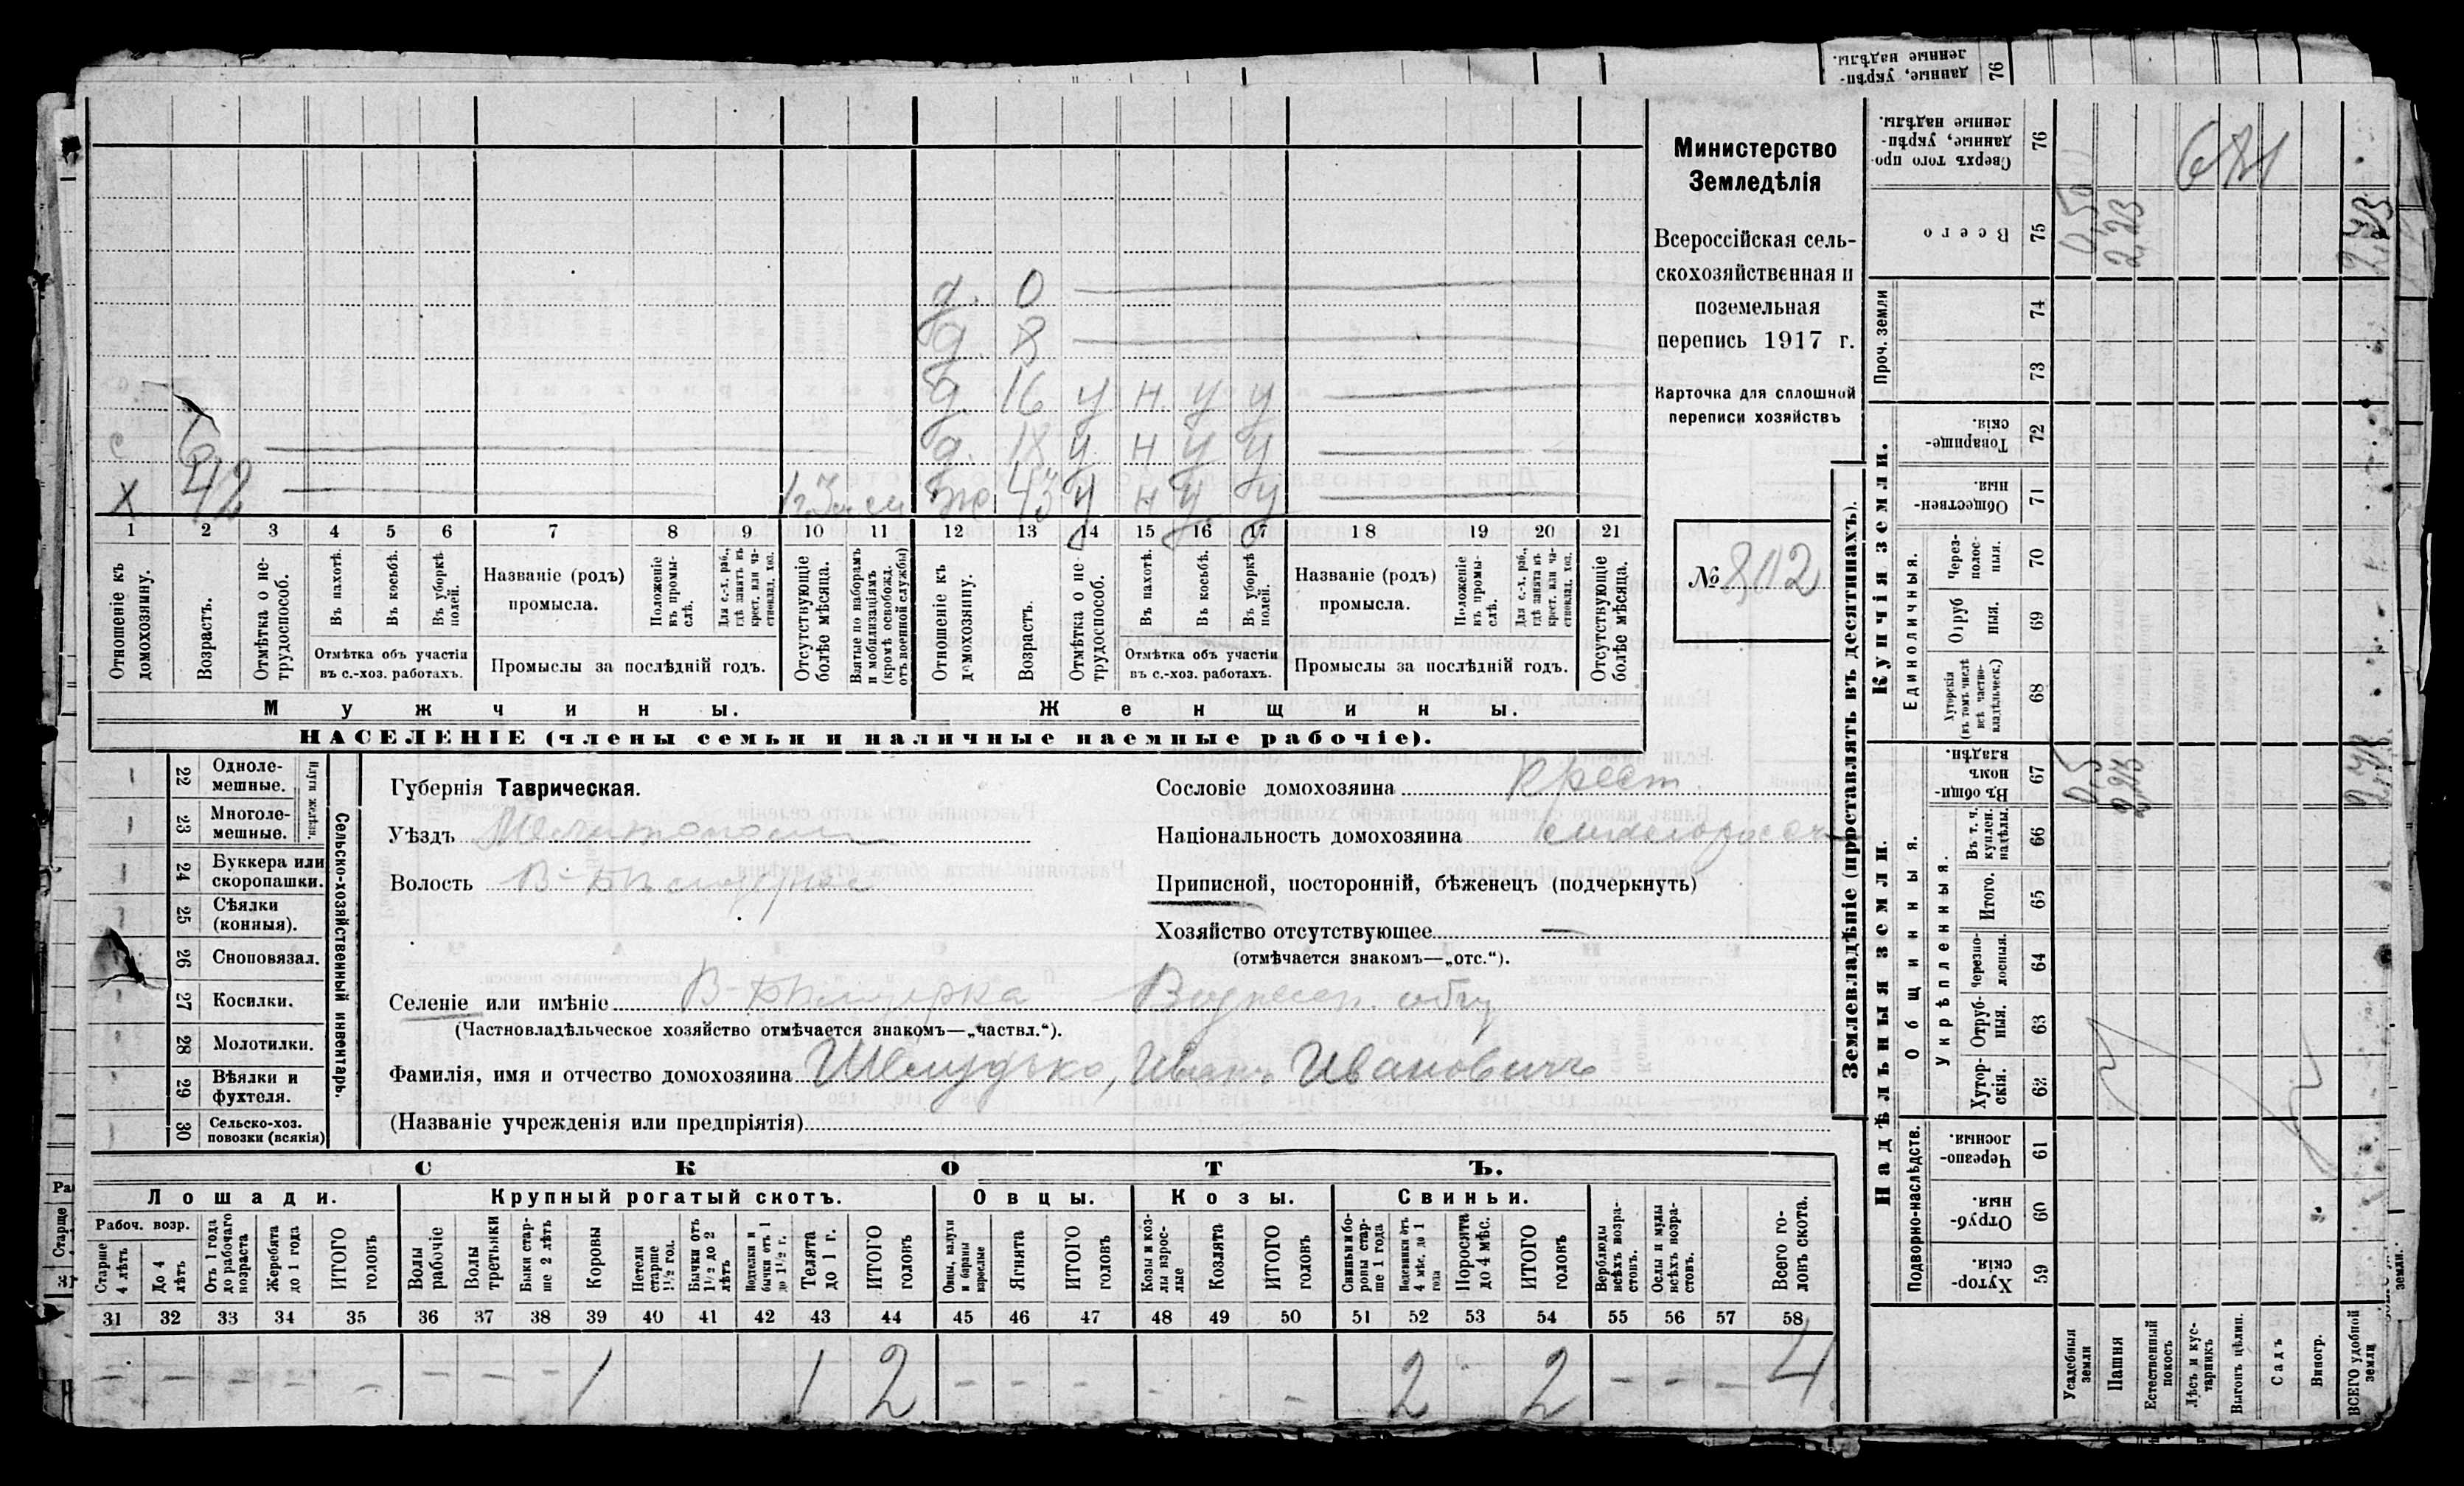 Министерство
Земледѣлія
Всероссійская сель-
скохозяйственная и
поземельная
перепись 1917 г.
Карточка для сплошной
переписи хозяйствъ
№ 802
д. 0
д. 8
д. 16 у н у у
с 6 д. 18 у н у у
х 42 ж 43 у н у у
1 2 3 4 5 6 7 8 9 10 11 12 13 14 15 16 17 18 19 20 21
Отношеніе къ домохозяину.
Возрастъ.
Отмѣтка о не-трудоспособ.
Въ пахотѣ.
Въ косьбѣ.
Въ уборкѣ полей.
Отмѣтка объ участіи
въ с.-хоз. работахъ.
Названіе (родъ)
промысла.
Положеніе въ промы-слѣ.
Для с.-х. раб., гдѣ занятъ въ крест. или ча-стновлад. хоз.
Промыслы за послѣдній годъ.
Отсутствующіе болѣе мѣсяца.
Взятые по наборамъ и мобилизаціямъ (кромѣ освобожд. отъ военной службы)
Отношеніе къ домохозяину.
Возрастъ.
Отмѣтка о не-трудоспособ.
Въ пахотѣ.
Въ косьбѣ.
Въ уборкѣ полей.
Отмѣтка объ участіи
въ с.-хоз. работахъ.
Названіе (родъ)
промысла.
Положеніе въ промы-слѣ.
Для с.-х. раб., гдѣ занятъ въ крест. или ча-стновлад. хоз.
Промыслы за послѣдній годъ.
Отсутствующіе болѣе мѣсяца.
Мужчины.
Женщины.
НАСЕЛЕНІЕ (члены семьи и наличные наемные рабочіе).
Сельско-хозяйственный инвентарь.
Плуги желѣзн.
22 Одноле-мешные.
23 Многоле-мешные.
24 Буккера или скоропашки.
25 Сѣялки (конныя).
26 Сноповязал.
27 Косилки.
28 Молотилки.
29 Вѣялки и фухтеля.
30 Сельско-хоз. повозки (всякія)
Губернія Таврическая.
Уѣздъ
Волость
Сословіе домохозяина крест
Національность домохозяина
Приписной, посторонній, бѣженецъ (подчеркнуть)
Хозяйство отсутствующее —
(отмѣчается знакомъ—„отс.“).
Селеніе или имѣніе
(Частновладѣльческое хозяйство отмѣчается знакомъ—„частвл.“).
Фамилія, имя и отчество домохозяина Шелудько, Иванъ Ивановичъ
(Названіе учрежденія или предпріятія)
СКОТЪ.
Лошади.
Крупный рогатый скотъ.
Овцы.
Козы.
Свиньи.
Рабоч. возр.
Старше 4 лѣтъ
До 4 лѣтъ
Отъ 1 года до рабочаго возраста
Жеребята до 1 года
ИТОГО головъ
Волы рабочіе
Волы третьяки
Быки стар-ше 2 лѣтъ
Коровы
Нетели старше 1½ год.
Бычки отъ 1½ до 2 лѣтъ
Подтелки и бычки отъ 1 до 1½ г.
Телята до 1 г.
ИТОГО головъ
Овцы, валухи и бараны взрослые
Ягнята
ИТОГО головъ
Козы и коз-лы взрос-лые
Козлята
ИТОГО головъ
Свиньи и бо-ровы стар-ше 1 года
Подсвинки отъ 4 мѣс. до 1 года
Поросята до 4 мѣс.
ИТОГО головъ
Верблюды всѣхъ возра-стовъ.
Ослы и мулы всѣхъ возра-стовъ.
Всего го-ловъ скота.
31 32 33 34 35 36 37 38 39 40 41 42 43 44 45 46 47 48 49 50 51 52 53 54 55 56 57 58
– – – – – – – – 1 1 2 – – – – – 2 2 – – – 4
Землевладѣніе (проставлять въ десятинахъ).
Надѣльныя земли.
Купчія земли.
Проч. земли
Подворно-наслѣдств.
Общинныя.
Укрѣпленныя.
Единоличныя.
Хутор-скія. 59
Отруб-ныя 60
Черезпо-лосныя. 61
Хутор-скія. 62
Отруб-ныя. 63
Черезпо-лосныя. 64
Итого. 65
Въ т. ч. куплен. надѣлы. 66
Въ общи-номъ владѣн. 67
Хуторскія (въ томъ числѣ всѣ частно-владѣльческ.) 68
Отруб ныя. 69
Через-полос-ныя. 70
Обществен-ныя. 71
Товарище-скія. 72
73
74
Всего 75
Сверхъ того про-данные, укрѣп-ленные надѣлы. 76
Усадебныя земли
Пашня
Естественный покосъ
Лѣсъ и кус-тарникъ
Выгонъ цѣлин.
Садъ
Виногр.
ВСЕГО удобной земли